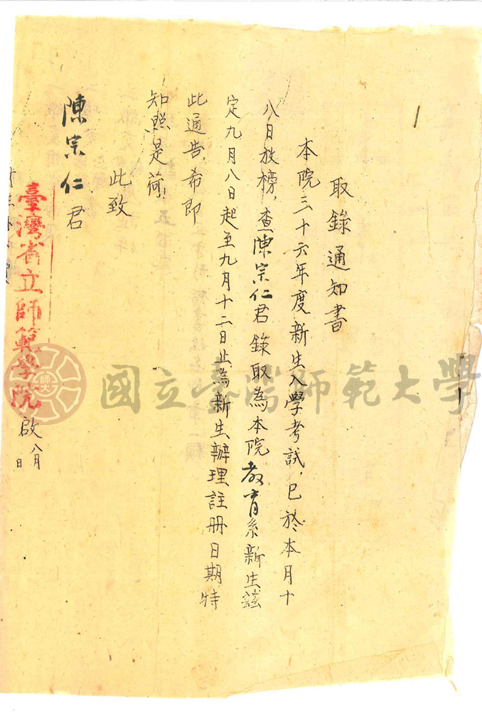 取錄通知書
本院三十六年度新生入學考試，已於本月十
八日放榜，查陳宗仁君錄取為本院教育系新生茲
定九月八日起至九月十二日止為新生辦理註冊日期特
此通告，希即
知照是荷！
此致
陳宗仁君
臺灣省立師範學院啟 八月 日
國立臺灣師範大學